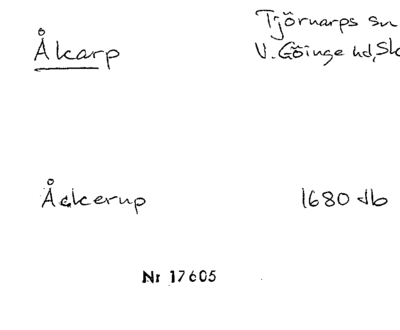 Åkarp
Tjörnarps sn
V. Göinge hd, Sk
Åckerup
1680 db
Nr 17605